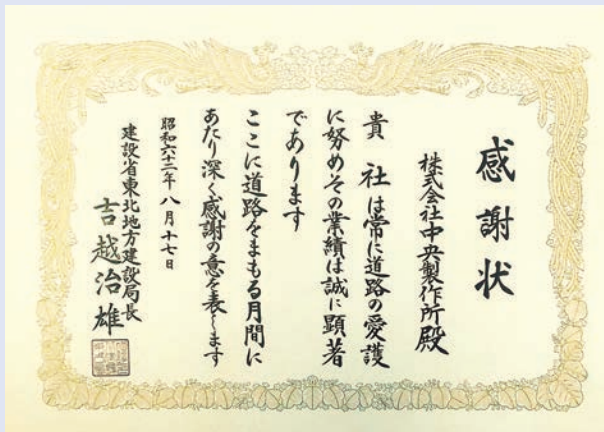 感謝状
株式会社中央製作所殿
貴社は常に道路の愛護
に努めその業績は誠に顕著
であります
ここに道路をまもる月間に
あたり深く感謝の意を表します
昭和六十三年八月十七日
建設省東北地方建設局長
吉越治雄